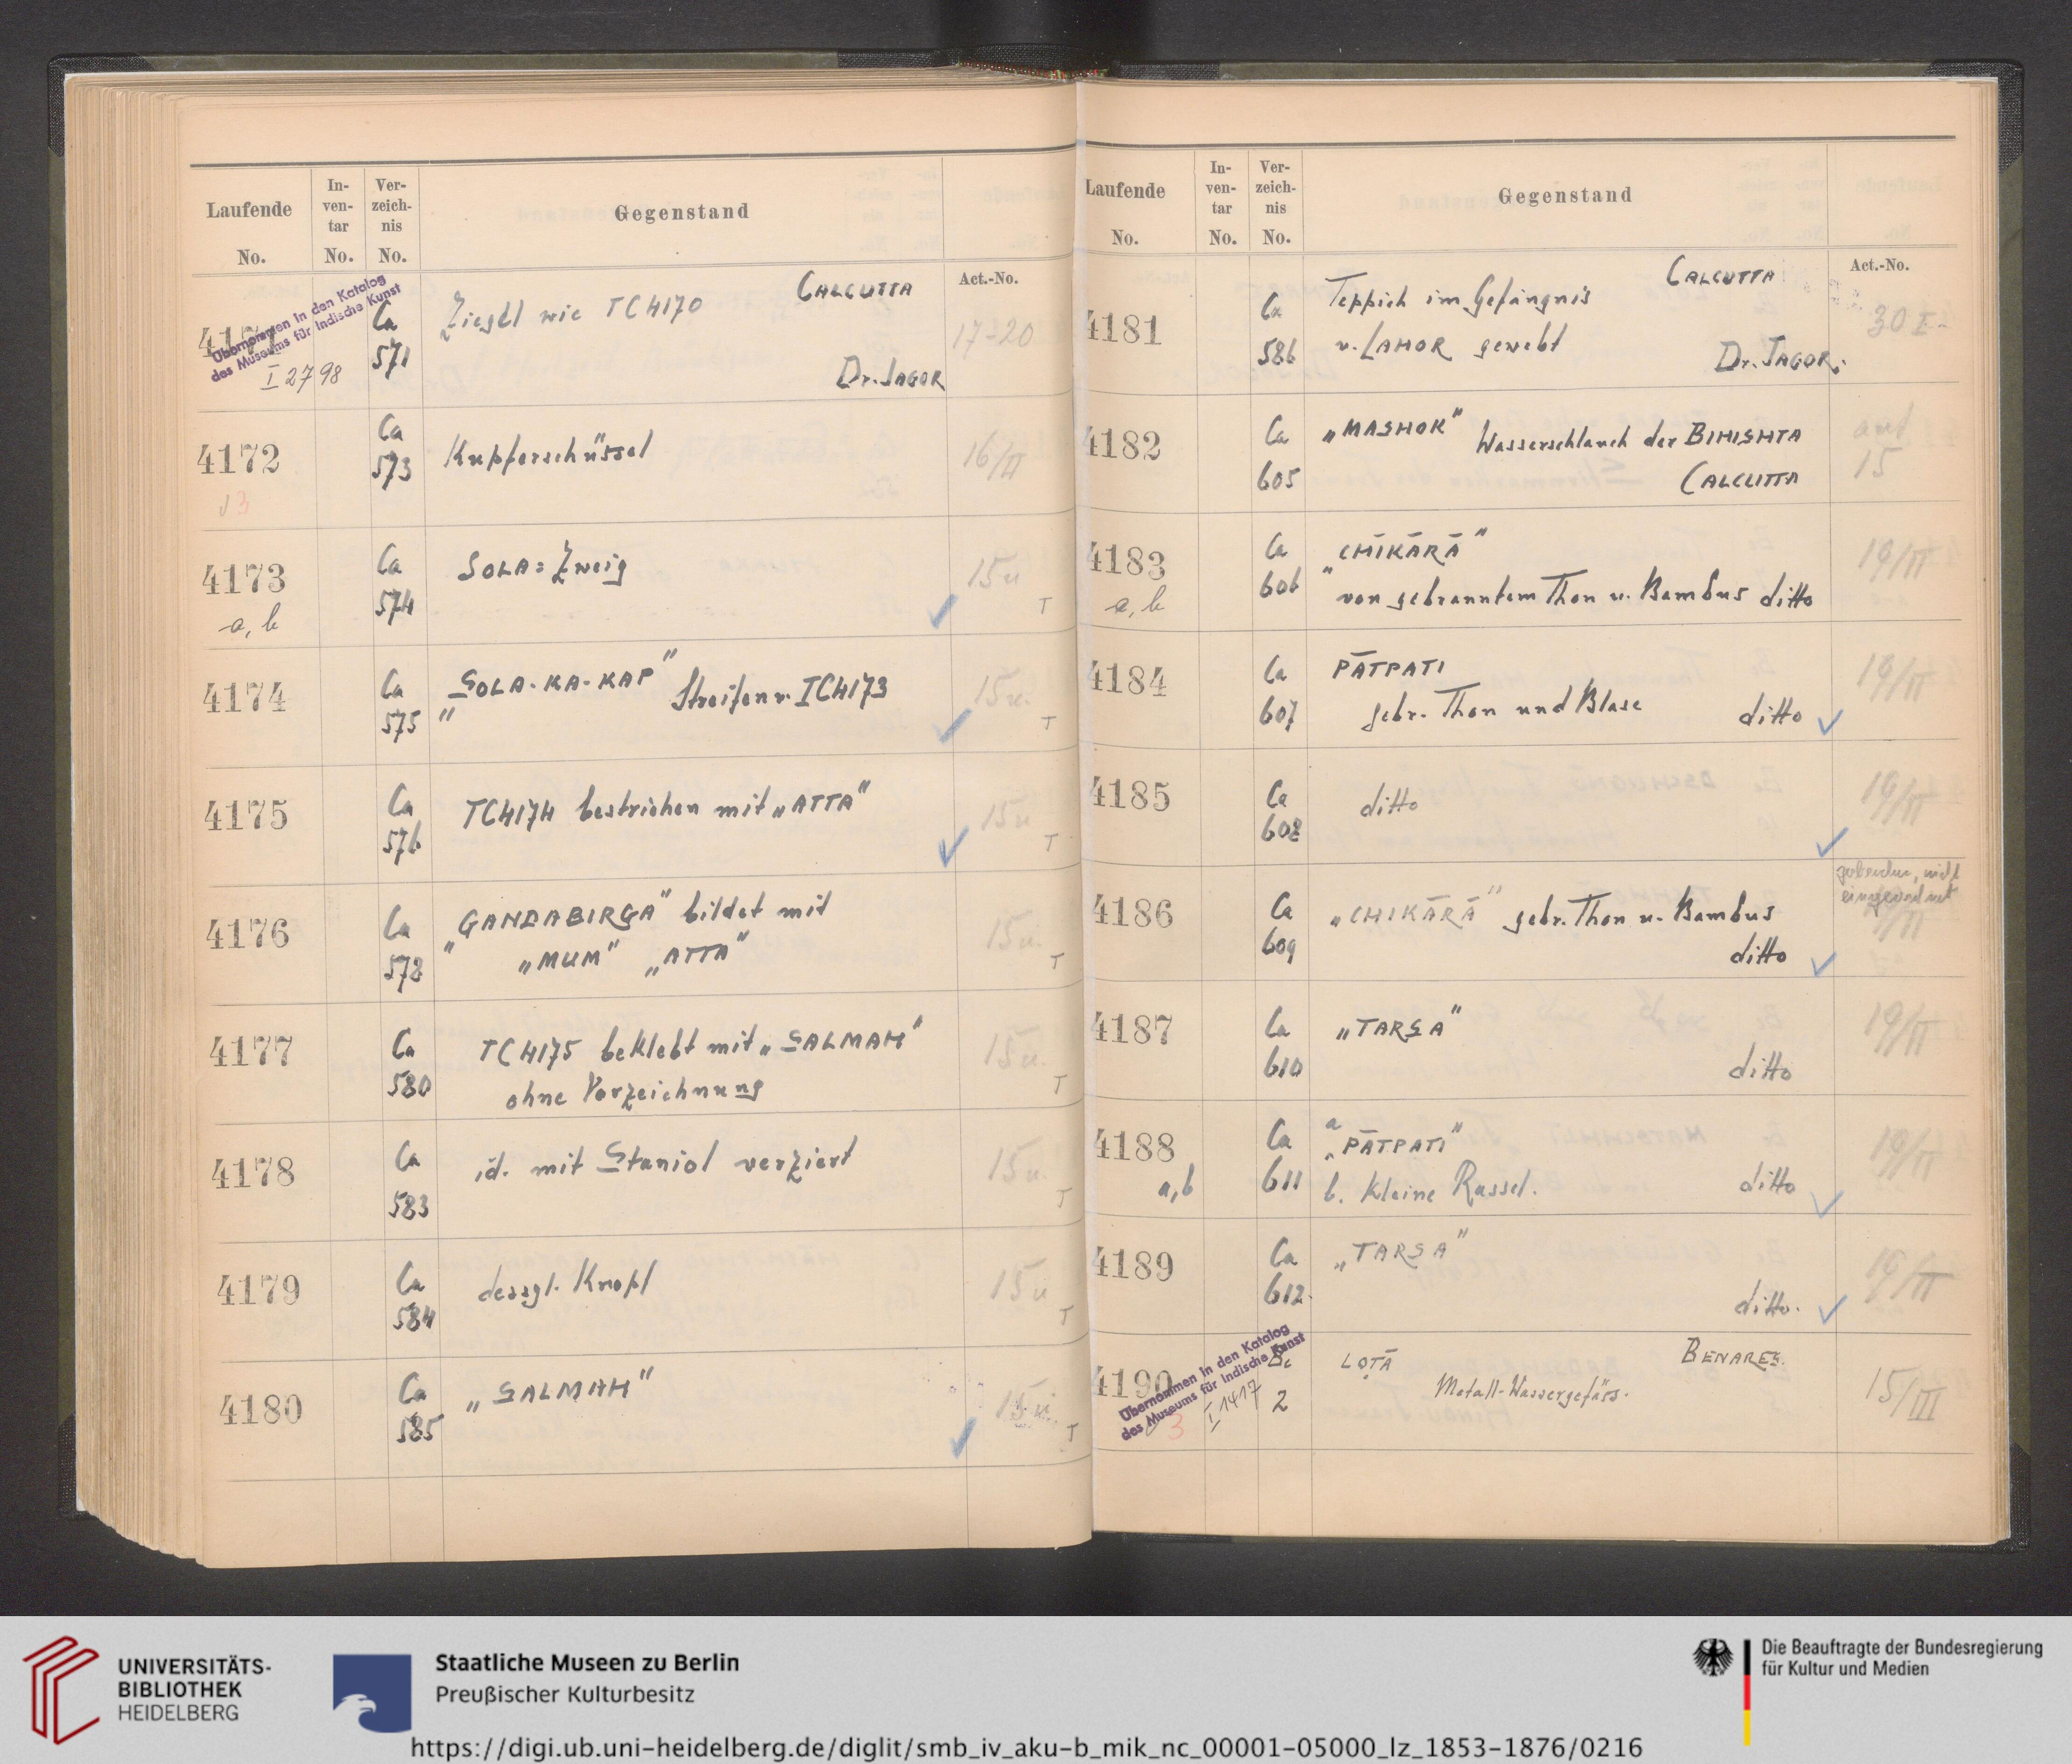 Laufende
No.
In-
ven-
tar
No.
Ver-
zeich-
nis
No.
Gegenstand
Act.-No.
4171
Übernommen in den Katalog
des Museums für Indische Kunst
I 2798
Ca
571
Ziegel wie IC4170
CALCUTTA
Dr. JAGOR
17-20
4172
3
Ca
573
Kupferschüssel
16/II
4173
a, b
Ca
574
SOLA=Zweig
15u
T
4174
Ca
575
„SOLA-KA-KAP" Streifen v. IC4173
15u.
T
4175
Ca
576
IC4174 bestrichen mit „ATTA"
15u
T
4176
Ca
578
„GANDABIRGA" bildet mit
„MUM" „ATTA"
15u.
T
4177
Ca
580
IC4175 beklebt mit „SALMAH"
ohne Vorzeichnung
15u.
T
4178
Ca
583
id. mit Staniol verziert
15u.
T
4179
Ca
584
dessgl. Knopf
15u
T
4180
Ca
585
„SALMAH"
15u
T
Laufende
No.
In-
ven-
tar
No.
Ver-
zeich-
nis
No.
Gegenstand
Act.-No.
4181
Ca
586
CALCUTTA
Teppich im Gefängnis
v. LAHOR gewebt
Dr. JAGOR.
30 I
4182
Ca
605
„MASHOK" Wasserschlauch der BIHISHTA
CALCUTTA
15
4183
a, b
Ca
606
„CHĪKĀRĀ"
von gebranntem Thon u. Bambus ditto
19/II
4184
Ca
607
PĀTPATI
gebr. Thon und Blase ditto
19/II
4185
Ca
608
ditto
19/II
4186
Ca
609
„CHIKĀRĀ" gebr. Thon u. Bambus
ditto
nicht
eingeordnet
4187
Ca
610
„TARSA"
ditto
19/II
4188
a, b
Ca
611
a „PĀTPATI"
b. Kleine Rassel. ditto
19/II
4189
Ca
612.
„TARSA"
ditto.
19/II
4190
Übernommen in den Katalog
des Museums für Indische Kunst
3
I 1417
2
LOTĀ
BENARES.
Metall-Wassergefäss.
15/III
UNIVERSITÄTS-
BIBLIOTHEK
HEIDELBERG
Staatliche Museen zu Berlin
Preußischer Kulturbesitz
Die Beauftragte der Bundesregierung
für Kultur und Medien
https://digi.ub.uni-heidelberg.de/diglit/smb_iv_aku-b_mik_nc_00001-05000_lz_1853-1876/0216